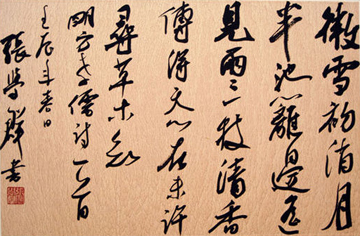 微雪初消月
半池籬邊遥
見兩三枝清香
傳得天心在未許
尋草木知
明方孝儒詩一首
壬辰年春日
張學書